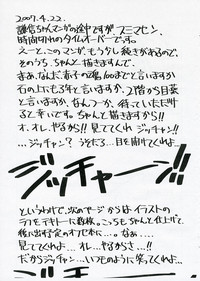 2007.4.22.
謙信ちゃんマンガの途中ですがスミマセン、
時間切れのタイムオーバーです…。
えーと、このマンガ、もう少し続きがあるので、
そのうち、ちゃんと描きますんで、
まぁ、なんだ
石の上にも3年と言いますか、2階から目薬
と言いますか、なんつーか、待っていただけ
ると幸いです。ちゃんと描きますから!!
オ、オレ、やるから!! 見ててくれ ジッチャン!!
…ジッチャン? うう…っ、目を開いてくれよ…
ジッチャーン!!
というわけで、次のページからはイラストの
ラフをテキトーに数枚。こっちもちゃんと仕上げて、
見ててくれよ… オレ…やるからさ…!!
だからジッチャン…いつものように笑ってくれよ…
ジッチャーン!!